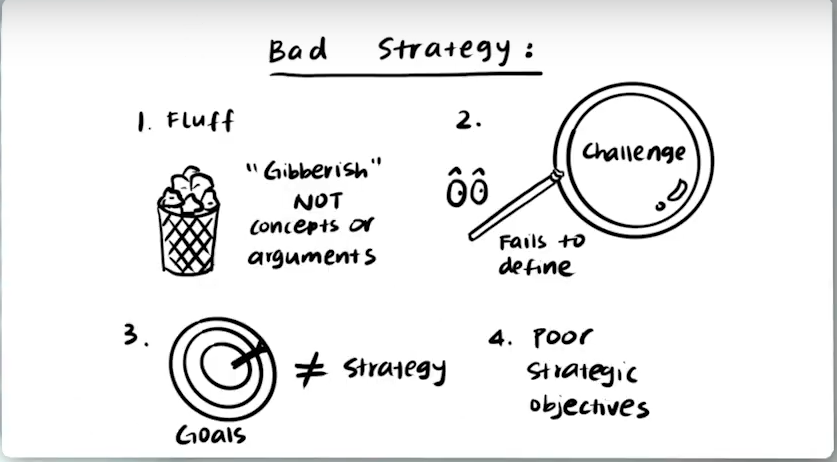 Bad Strategy:
1. Fluff
"Gibberish"
NOT
concepts or
arguments
2.
Challenge
Fails to
define
3.
Goals
≠ Strategy
4. Poor
Strategic
objectives